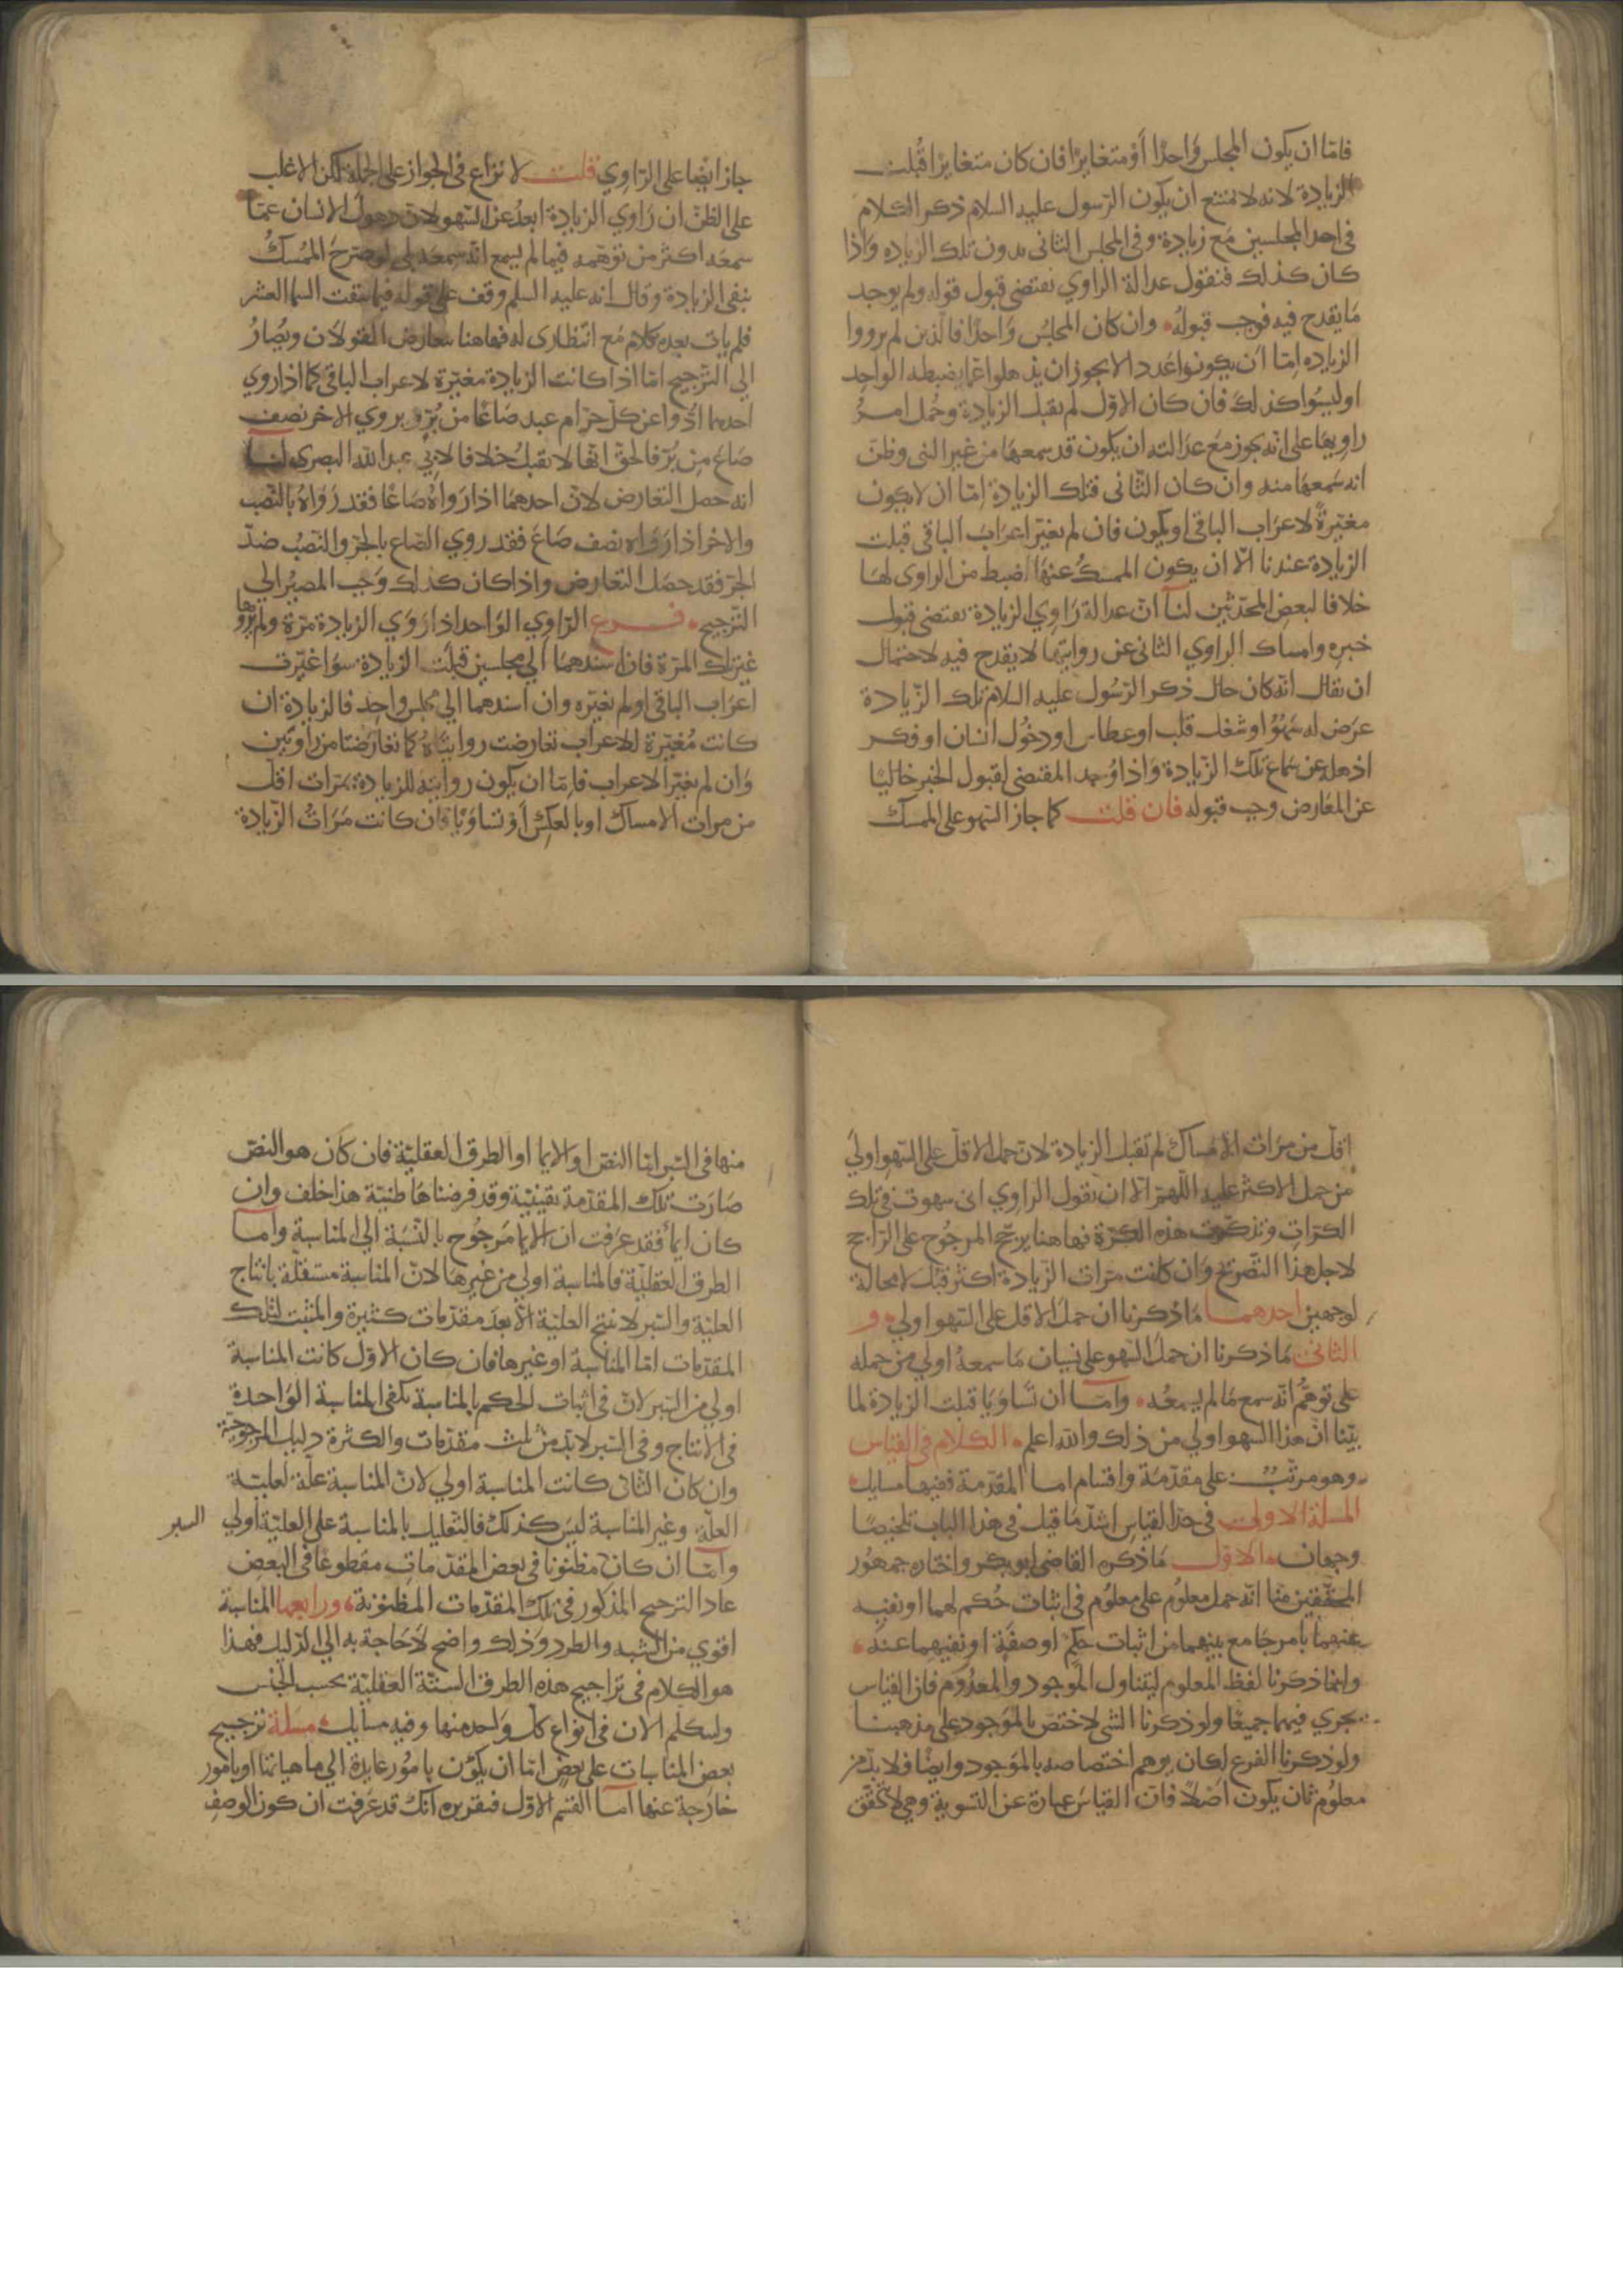 فامّا ان يكون المجلس وَاحدًا أوْ متغايرًا فان كان متغايرًا قُبلت
الزيادة لانه لا يمتنع ان يكون الرّسول عليه السلام ذكر الكلام
فى احد المجلسين مَع زيادة وفى المجلس الثانى بدون تلك الزياده وَاذا
كان كذلك فنقول عدالة الراوي تقتضى قبول قوله ولم يوجد
مَا يقدح فيه فوجب قبولهُ وان كان المجلسُ وَاحدًا فالذين لم يرووا
الزياده اِمّا أن يكونوا عَددا لا يجوز ان يذهلوا عمّا يضبطه الواحِد
او ليسُوا كذلكَ فان كان الاوّل لم يقبل الزيادة وحُمل امرُ
راويهَا على انّه يجوز مَع عدَالته ان يكون قد سمعهَا من غير النبى وظنّ
انه سَمعهَا منه وان كان الثّانى فتلك الزيادة اِمّا ان لا يكون
مغيّرةً لاعرَاب الباقى او يكون فان لم يغيّر اعرَابَ الباقى قبلت
الزيادة عندنا الّا ان يكون الممسكُ عنهَا اضبط من الراوى لهَا
خلافا لبعض المحدّثين لنا انّ عدالة رَاوي الزيادة تقتضى قبول
خبره وامساك الراوي الثانى عن روايتها لا يقدح فيه لاحتمال
ان يقال انّه كان حال ذكر الرّسُول عليه السلام تلك الزّيادة
عرَض له سَهْوٌ او شغل قلب او عطاس او دخُول انسان او فكر
اذهله عن سَماع تلك الزّيادة وَاذا وُجد المقتضى لقبول الخبر خاليًا
عن المعَارض وجب قبوله فان قلت كما جاز السّهو على الممسك
جاز ايضًا على الرّاوِي قلت لا نزاع فى الجواز على الجملة لكن الاغلب
على الظنّ ان رَاوي الزيادة ابعدُ عن السّهو لانّ ذهول الانسان عمّا
سمعَه اكثر من توهّمه فيما لم يسمع انّه سمعَه بلى لو صَرّح المُمسكُ
بنفى الزيادة وقال انه عليه السلم وقف على قوله فيما سقت السما العشر
فلم يات بعده كلام مَع انتظارى له فهاهنا يتعارض القولان ويُصَارُ
الى التّرجيح امّا اذا كانت الزيادة مغيّرة لاعراب الباقى كما اذا روي
احدهما ادّوا عن كلّ حرّ ام عبد صَاعًا من بُرّ ويروي الاخر نصف
صَاعَ مِن بُرّ فالحقّ انّها لا تقبلُ خلافا لابي عبد الله البصرى لنا
انه حصل التعارض لانّ احدهمَا اذا رَوَاهُ صَاعًا فقد رَوَاهُ بالنّصب
والاخر اذا رَوَاه نصف صَاعَ فقد روي الصّاع بالجرّ والنّصبُ ضدّ
الجرّ فقد حصَل التعَارض واذا كان كذلك وَجب المصيرُ الى
التّرجيح فـرع الرّاوِي الوَاحد اذا رَوَي الزيادة مَرّة ولم يَروهَا
غيرَ تلك المرّة فان اسندهمَا الى مجلسين قبلت الزيادة سوَا غيّرت
اعرَاب الباقى او لم تغيّره وان اسندهما الى مجلس واحِد فالزيادة ان
كانت مُغيّرة للاعراب تعارضت روايتَاهُ كما تعارَضتا من رَاوِيَين
وَان لم تغيّر الاعراب فاِمّا ان يكون روايته للزيادة مَرّات اقلّ
من مرات الامساك او بالعكسِ أوْ تساوَيَا فان كانت مَرَاتُ الزّيادة
اقلّ من مرَات الامسَاك لم تقبل الزيادة لانّ حمل الاقلّ على السّهو اولَي
من حمل الاكثر عليه اللّهمّ الّا ان يقول الراوي انى سهوت فى تلك
الكرّاتِ وتذكّرت هذه الكرّة فهاهنا يرجّح المرجُوح على الرّاجح
لاجل هذا التّصريح وَان كانت مرّات الزّيادة اكثر قبلت لا محالة
لوجهين احدهمـا مَا ذكرنا ان حمَل الاقل على السّهو اولي و
الثانى مَا ذكرنا ان حملَ السّهو على نسيان مَا سمعهُ اولي مِن حمله
على توهّم انّه سمع مَا لم يسمعْه وامّـا ان تسَاوَيَا قبلت الزيادة لما
بيّنا انّ هَذا السهو اولي من ذلك والله اعلم الكلام فى القيَاس
وهو مرتّبٌ على مقدّمَة واقسَام امـا المقدّمة ففيهَا مسايل
المسلة الاولى فى حدّ القيَاس اشدّ مَا قيل فى هذا الباب تلخيصًا
وجهان الاوّل مَا ذكره القاضى ابو بكر واختاره جمهُور
المحقّقين منّا انّه حمل معلُوم على معلُوم فى اثبات حُكم لهما او نفيه
عنهمَا بامر جامع بينهما من اثبات حكمِ او صفَة او نفيهما عنه
وانما ذكرنا لفظ المعلوم ليتناول الموجود والمعدُوم فان القياس
يجري فيهمَا جميعًا ولو ذكرنا الشى لاختصّ بالموَجود على مذهبنـا
ولو ذكرنا الفرع لكان يوهم اختصاصه بالموَجود وايضًا فلا بدّ من
معلُوم ثان يكون أصْلاً فانّ القيَاسَ عبارة عن التّسوية وهي لا تتحقّق
منهَا فى السّبر امّا النصّ او الايما او الطرق العقليّة فان كان هو النصّ
صَارَت تلك المقدّمة يقينيّة وقد فرضناهَا ظنيّة هذا خلف وان
كان ايمأً فقد عرَفت ان الايما مَرجُوح بالنّسبَة الي المناسبة وامـا
الطرق العقليّة فالمناسبة اولي من غيرهَا لانّ المناسبة مستقلّة بانتاج
العليّة والسّبر لا ينتج العليّة الّا بعدَ مقدّمات كثيرة والمثبت لتلك
المقدّمات امّا المنَاسبة او غيرها فان كان الاوّل كانت المناسبة
اولي من السّبر لانّ فى اثبات الحكم بالمنَاسبة تكفى المناسبة الوَاحدة
فى الانتاج وفى السّبر لا بدّ من ثلث مقدّمات والكثرة دليل المرجوحيّة
وان كان الثانى كانت المنَاسبة اولي لانّ المنَاسبة علّة لعليّـة
العلّة وغير المناسَبة ليسَ كذلكَ فالتّعليل بالمنَاسبة على العليّة اولي
السبر
وامّـا ان كان مظنُونا فى بعض المقدّماتِ مقطوعًا فى البعض
عاد الترجيح المذكور فى تلك المقدّمات المظنُونة ورابعها المنَاسبة
اقوي من الشبه والطرد وَذلك واضح لاحَاجة به الي الدّليل فهذا
هو الكلام فى تراجيح هذه الطرق السـتّة العقليّة بحسب الجنس
ولنتكلّم الان فى انواع كلّ وَاحد منها وفيه مسايل مسلة ترجيح
بعض المناسبات على بعض امّا ان يكون بامُور عايدة الي ماهياتها او بامور
خارَجة عنها امـا القسْم الاوّل فتقريره انّك قد عَرفت ان كون الوصف